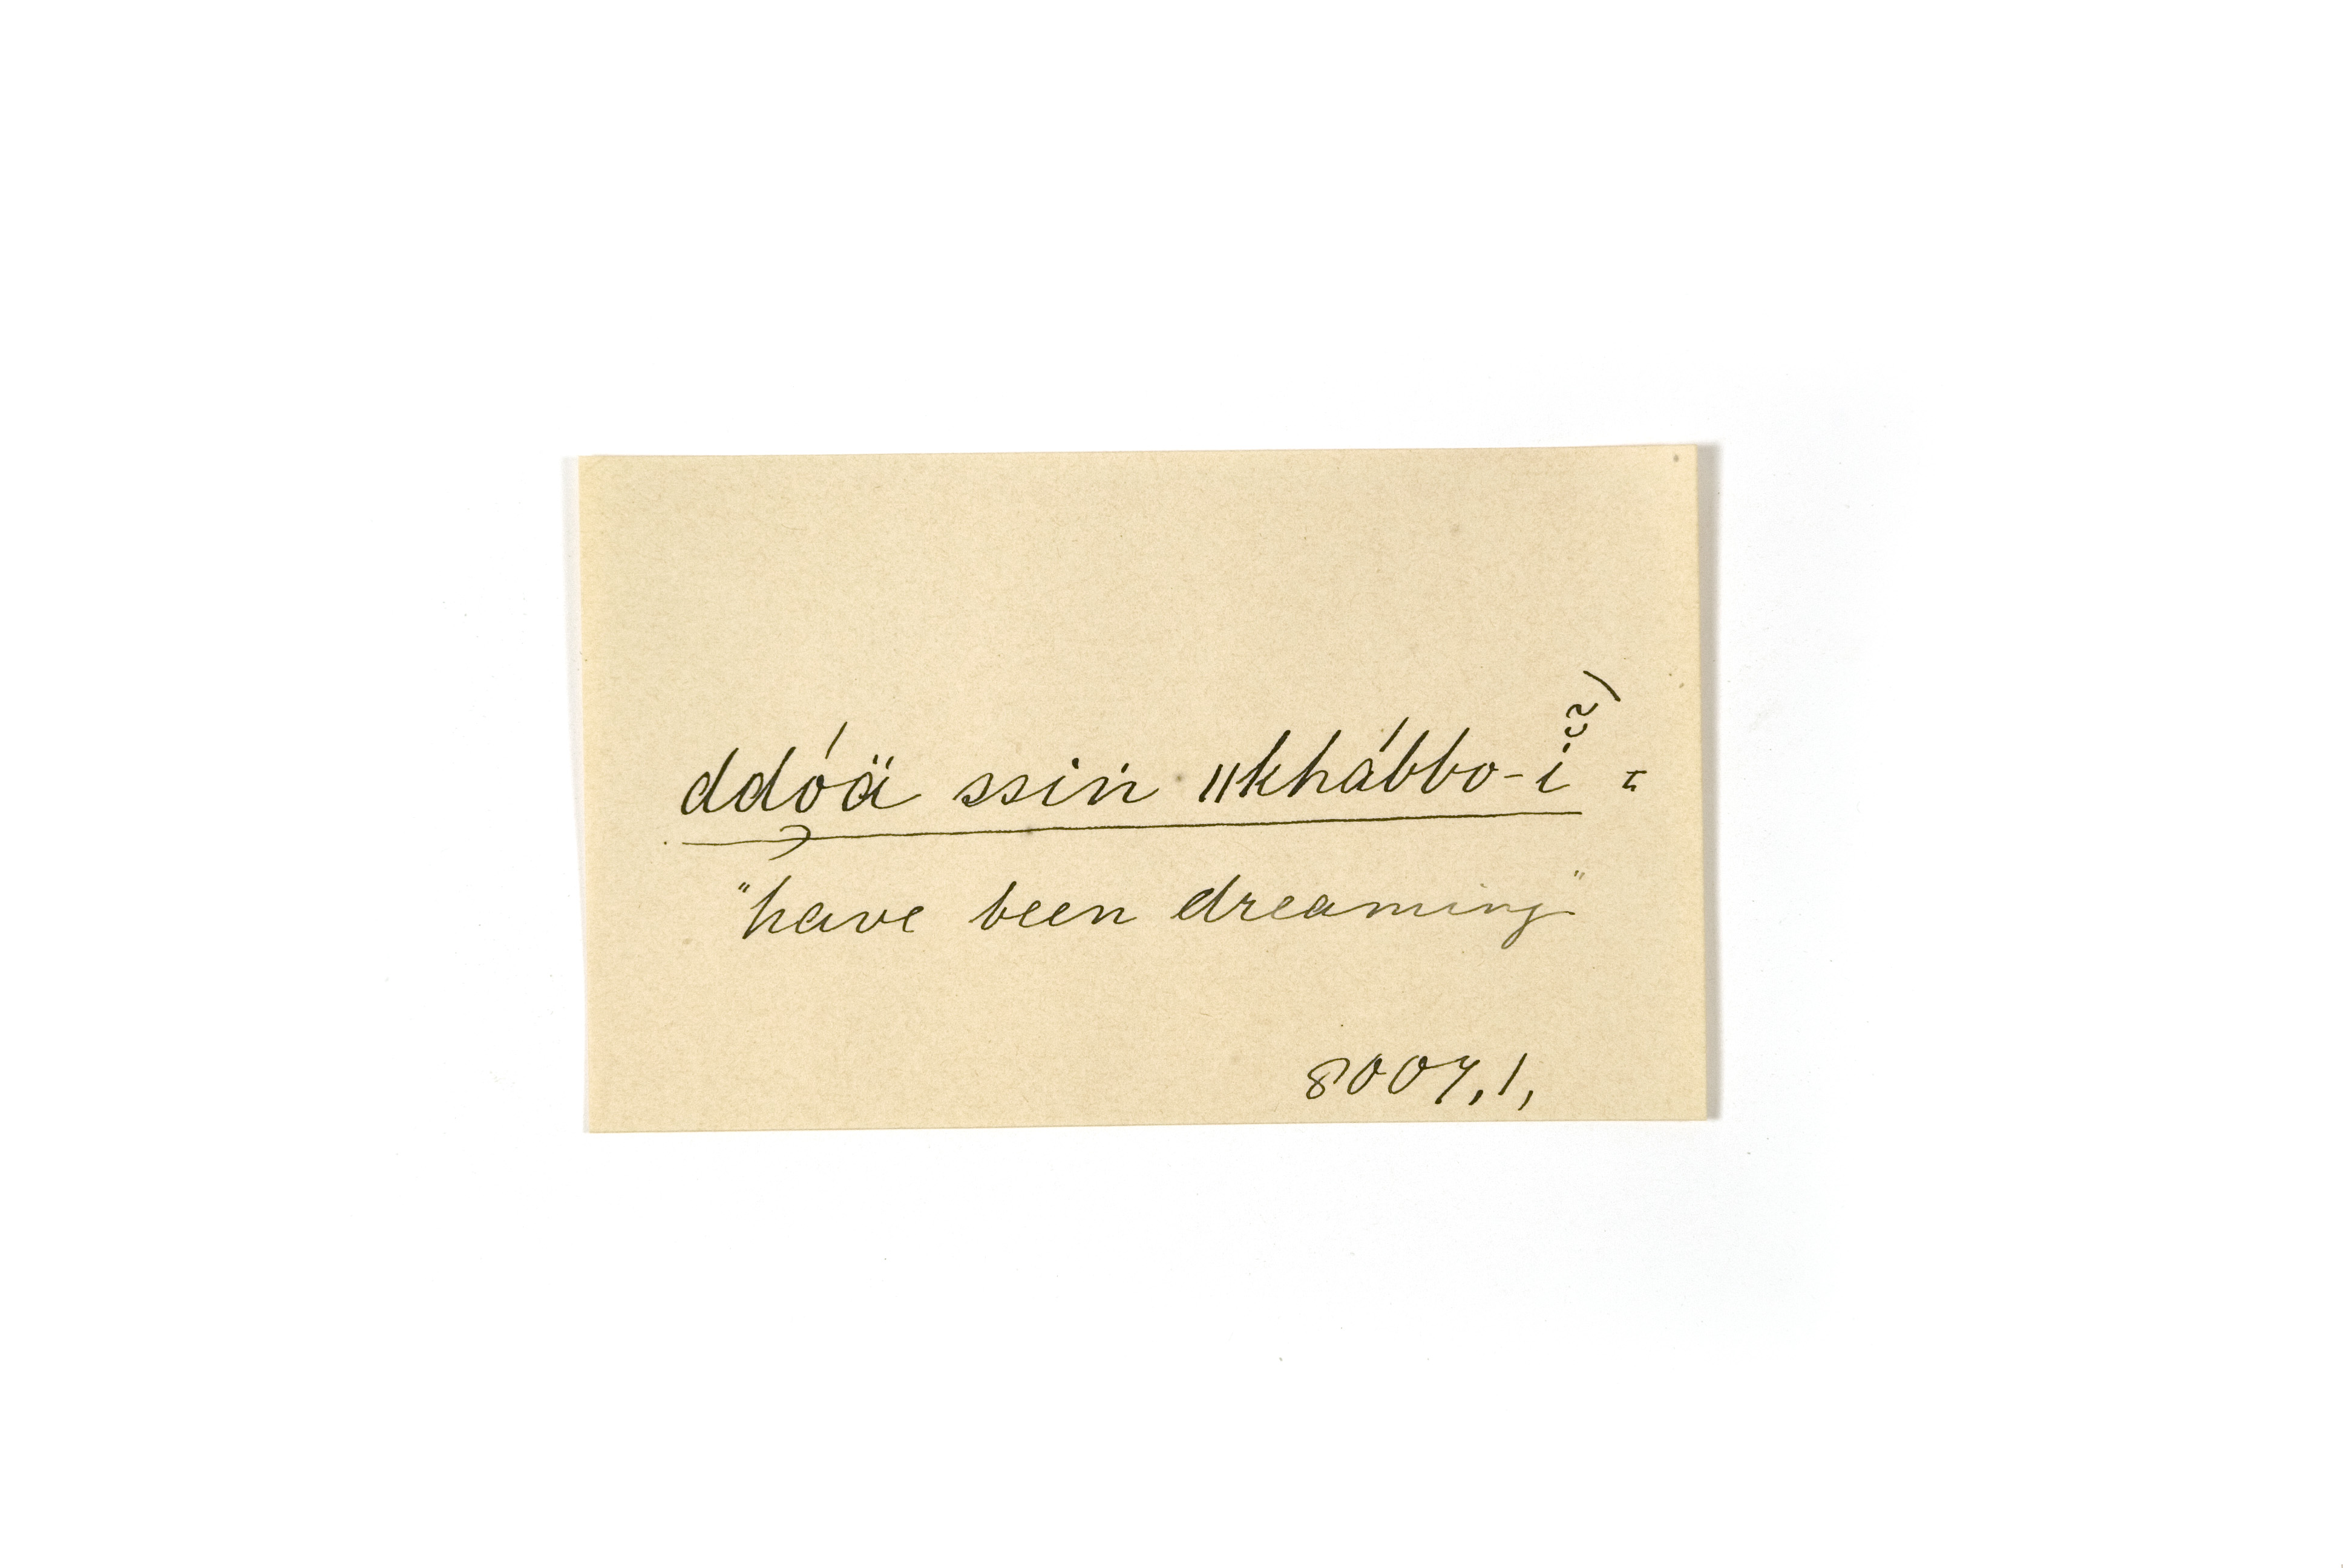 ddóä ssiṅ ǁkhábbo-i =
"have been dreaming"
8007,1,